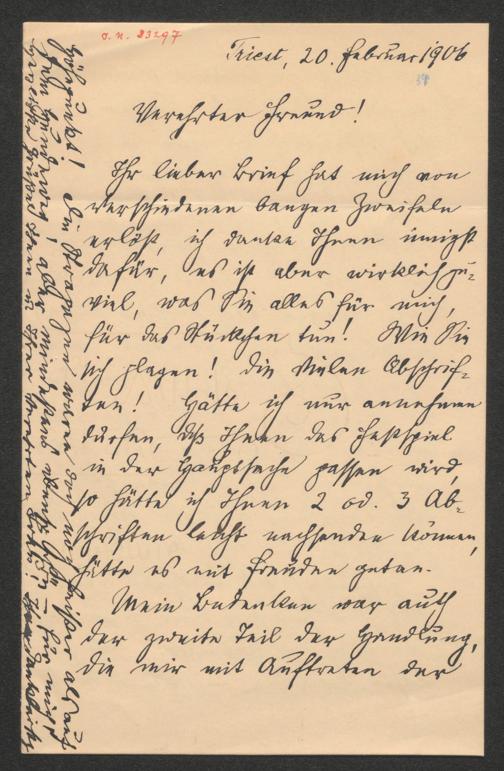 J. N. 23297
Triest, 20. Februar 1906
39
Verehrter Freund!
Ihr lieber Brief hat mich von
verschiedenen bangen Zweifeln
erlöst, ich danke Ihnen innigst
dafür, es ist aber wirklich zu-
viel, was Sie alles für mich,
für das Stückchen tun! Wie Sie
sich plagen! Die vielen Abschrif-
ten! Hätte ich nur annehmen
dürfen, daß Ihnen das Festspiel
in der Hauptsache passen wird,
so hätte ich Ihnen 2 od. 3 Ab-
schriften leicht nachsenden können,
hätte es mit Freuden getan.
Mein Bedenken war auch
der zweite Teil der Handlung,
die mir mit Auftreten der